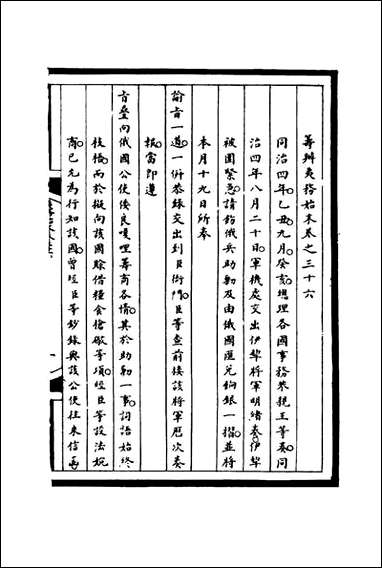 籌辦夷務始末卷之三十六
同治四年乙丑九月癸亥總理各國事務恭親王等奏同
治四年八月二十日軍機處交出伊犂將軍明緒奏伊犂
被圍緊急請飭俄兵助勦及由俄國匯兌餉銀一摺並將
本月十九日所奉
諭旨一道一併恭錄交出到臣衙門臣等查前接該將軍歷次奏
報當即遵
旨疊向俄國公使倭良嘎理籌商各情其於助勦一事詞語始終
枝梧而於擬向該國賒借糧食槍礮等項經臣等設法婉
商已允為行知該國曾經臣等鈔錄與該公使往來信函